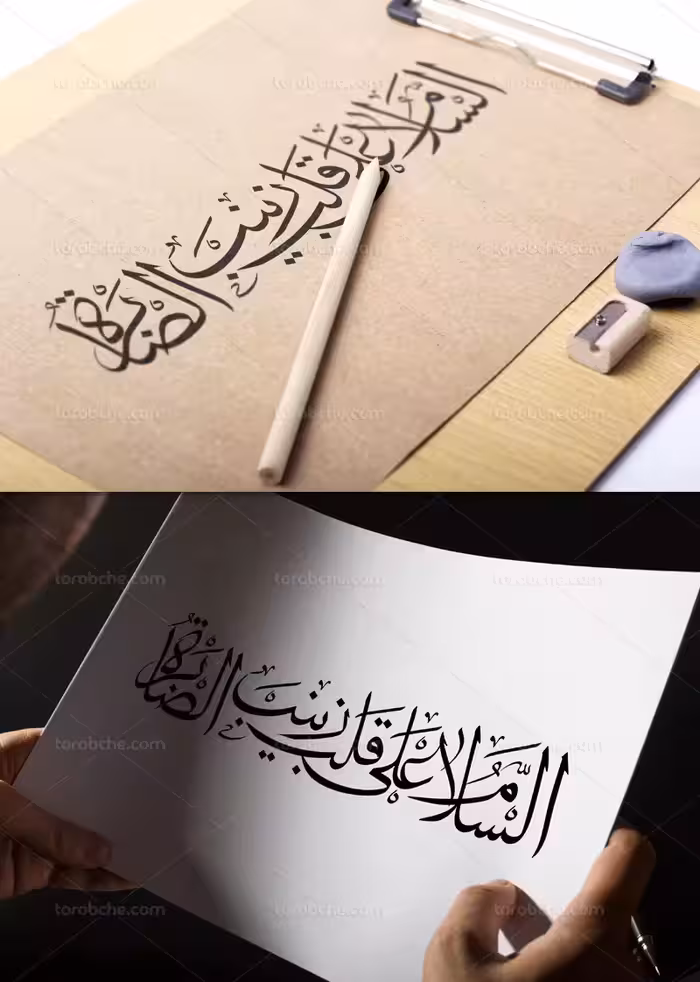 torobche.com torobche.com torobche.com
السلام على قلب زينب الصابرة
torobche.com torobche.com torobche.com
torobche.com torobche.com torobche.com
torobche.com torobche.com torobche.com
السلام على قلب زينب الصابرة
torobche.com torobche.com torobche.com
torobche.com torobche.com torobche.com